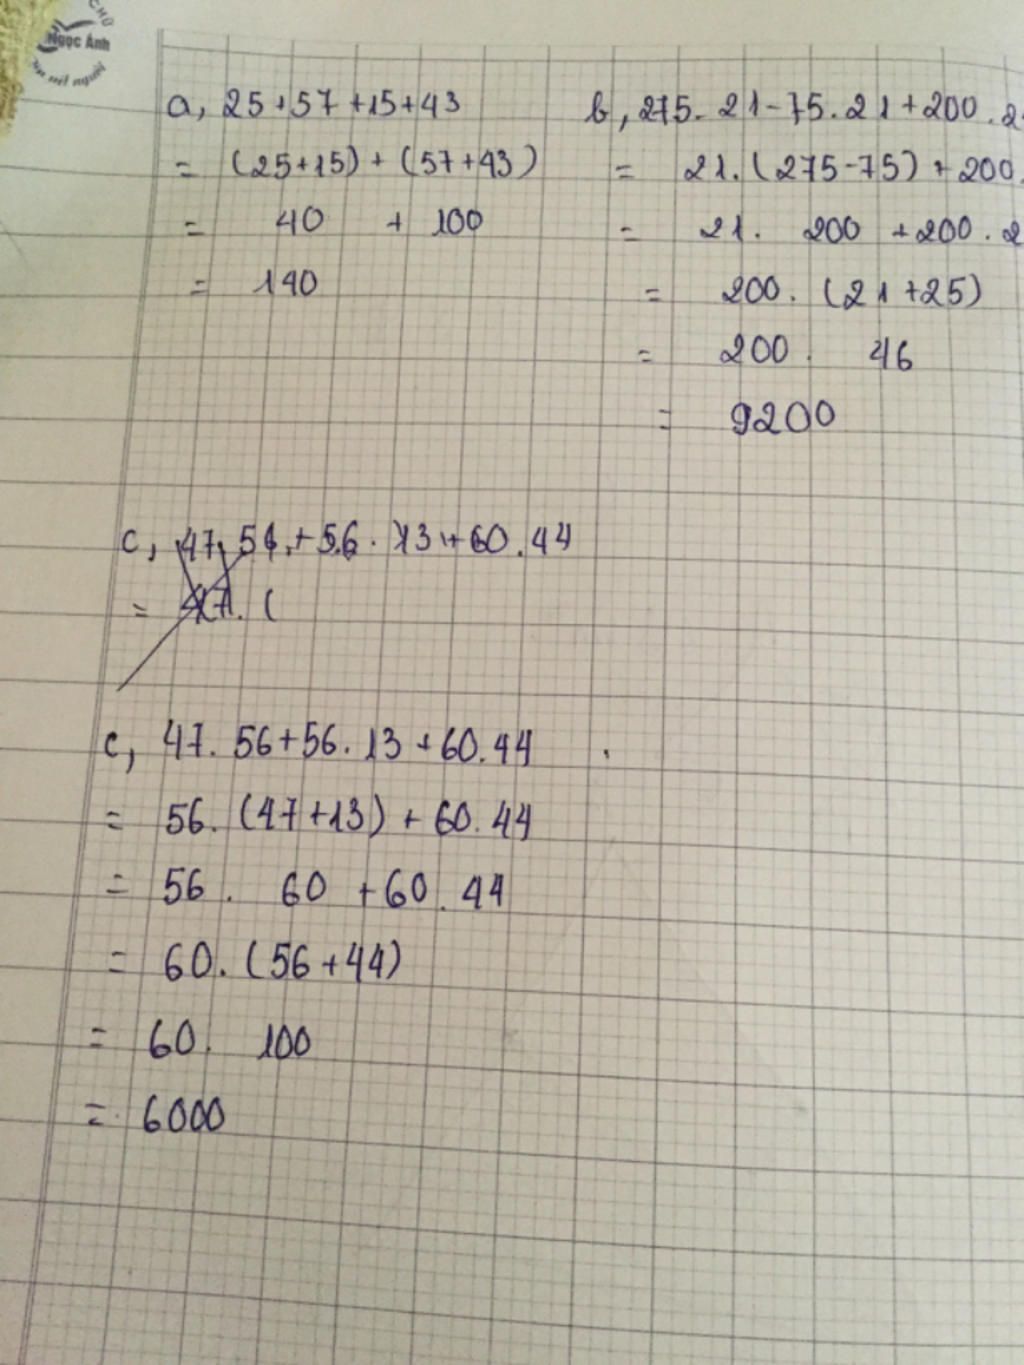 CHỮ
Ngọc Ánh
a, 25+57+15+43
= (25+15) + (57+43)
= 40 + 100
= 140
b, 275. 21-75.21+200.2
= 21.(275-75) + 200.
= 21. 200 +200.2
= 200. (21+25)
= 200. 46
= 9200
c, 47. 56+56. 13+60.44
= 47. (
c, 47. 56+56. 13+60.44
= 56. (47+13) + 60.44
= 56. 60 +60.44
= 60. (56+44)
= 60. 100
= 6000